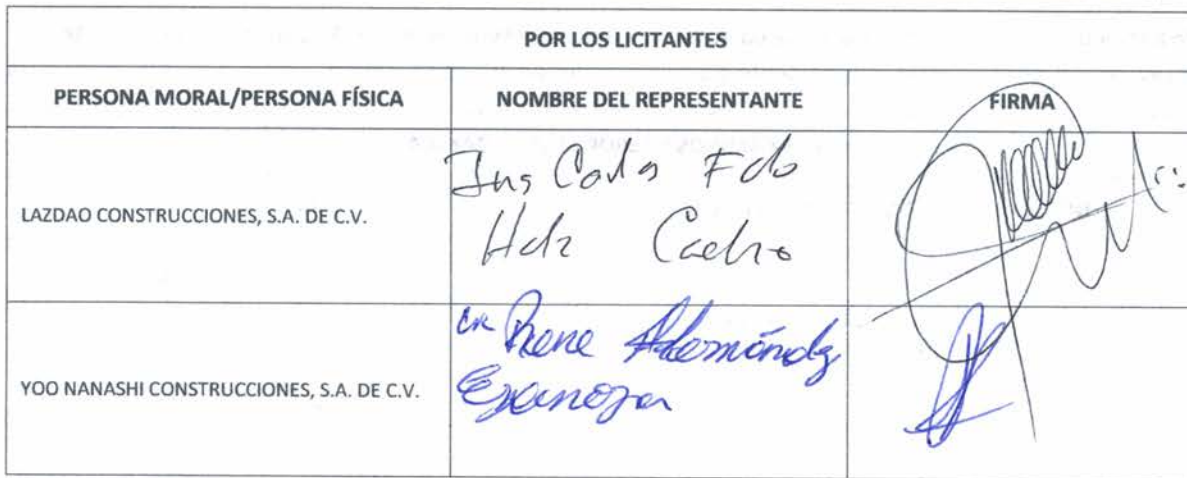 POR LOS LICITANTES
PERSONA MORAL/PERSONA FÍSICA NOMBRE DEL REPRESENTANTE FIRMA
LAZDAO CONSTRUCCIONES, S.A. DE C.V.
Ing Carlos Fdo
Hdz Castro
YOO NANASHI CONSTRUCCIONES, S.A. DE C.V.
Rene Hernández
Espinoza